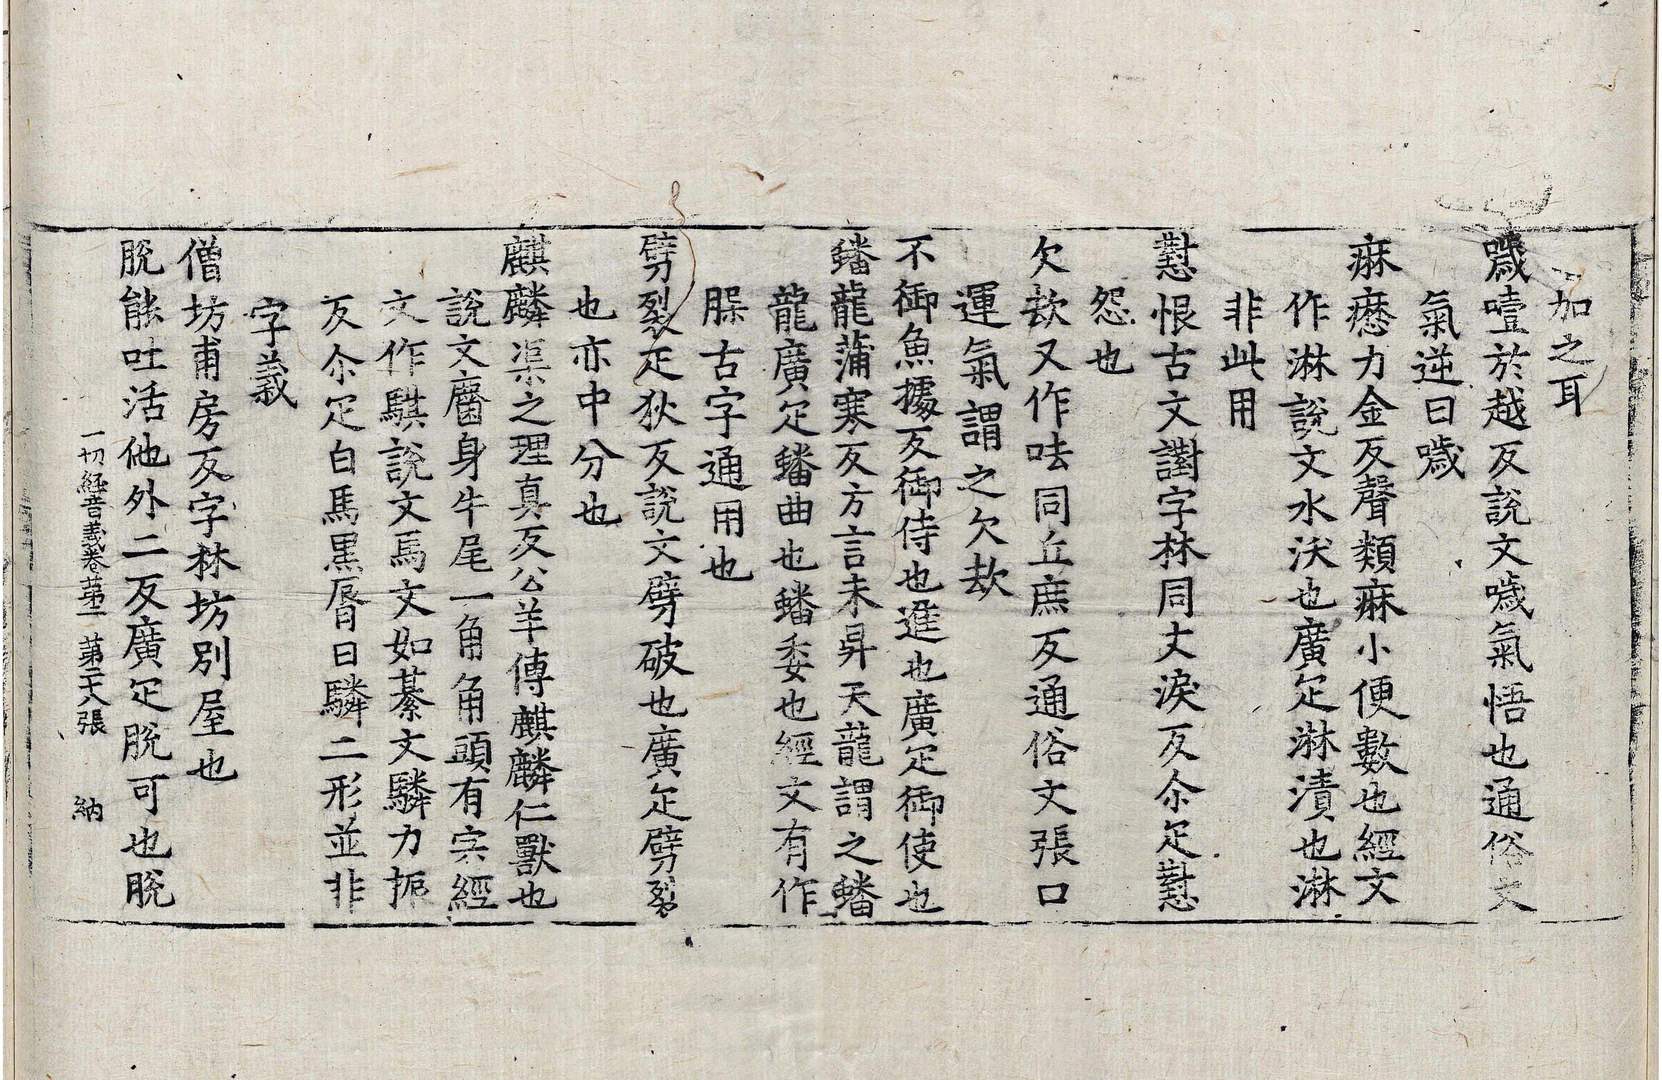 加之耳
噦噎於越反說文噦氣悟也通俗文
氣逆曰噦
痳𤻎力金反聲類痳小便數也經文
作淋說文水沃也廣疋淋漬也淋
非此用
懟恨古文譵字林同丈淚反尒疋懟
怨也
欠㰦又作呿同丘庶反通俗文張口
運氣謂之欠㰦
不御魚據反御侍也進也廣疋御使也
蟠龍蒲寒反方言未昇天龍謂之蟠
龍廣疋蟠曲也蟠委也經文有作
古字通用也
劈裂疋狄反說文劈破也廣疋劈裂
也亦中分也
麒麟渠之理真反公羊傳麒麟仁獸也
說文麕身牛尾一角角頭有宍經
文作騏說文馬文如綦文驎力振
反尒疋白馬黑脣曰驎二形並非
字義
僧坊甫房反字林坊別屋也
脫能吐活他外二反廣疋脫可也脫
一切經音義卷第一 第二十八張 納